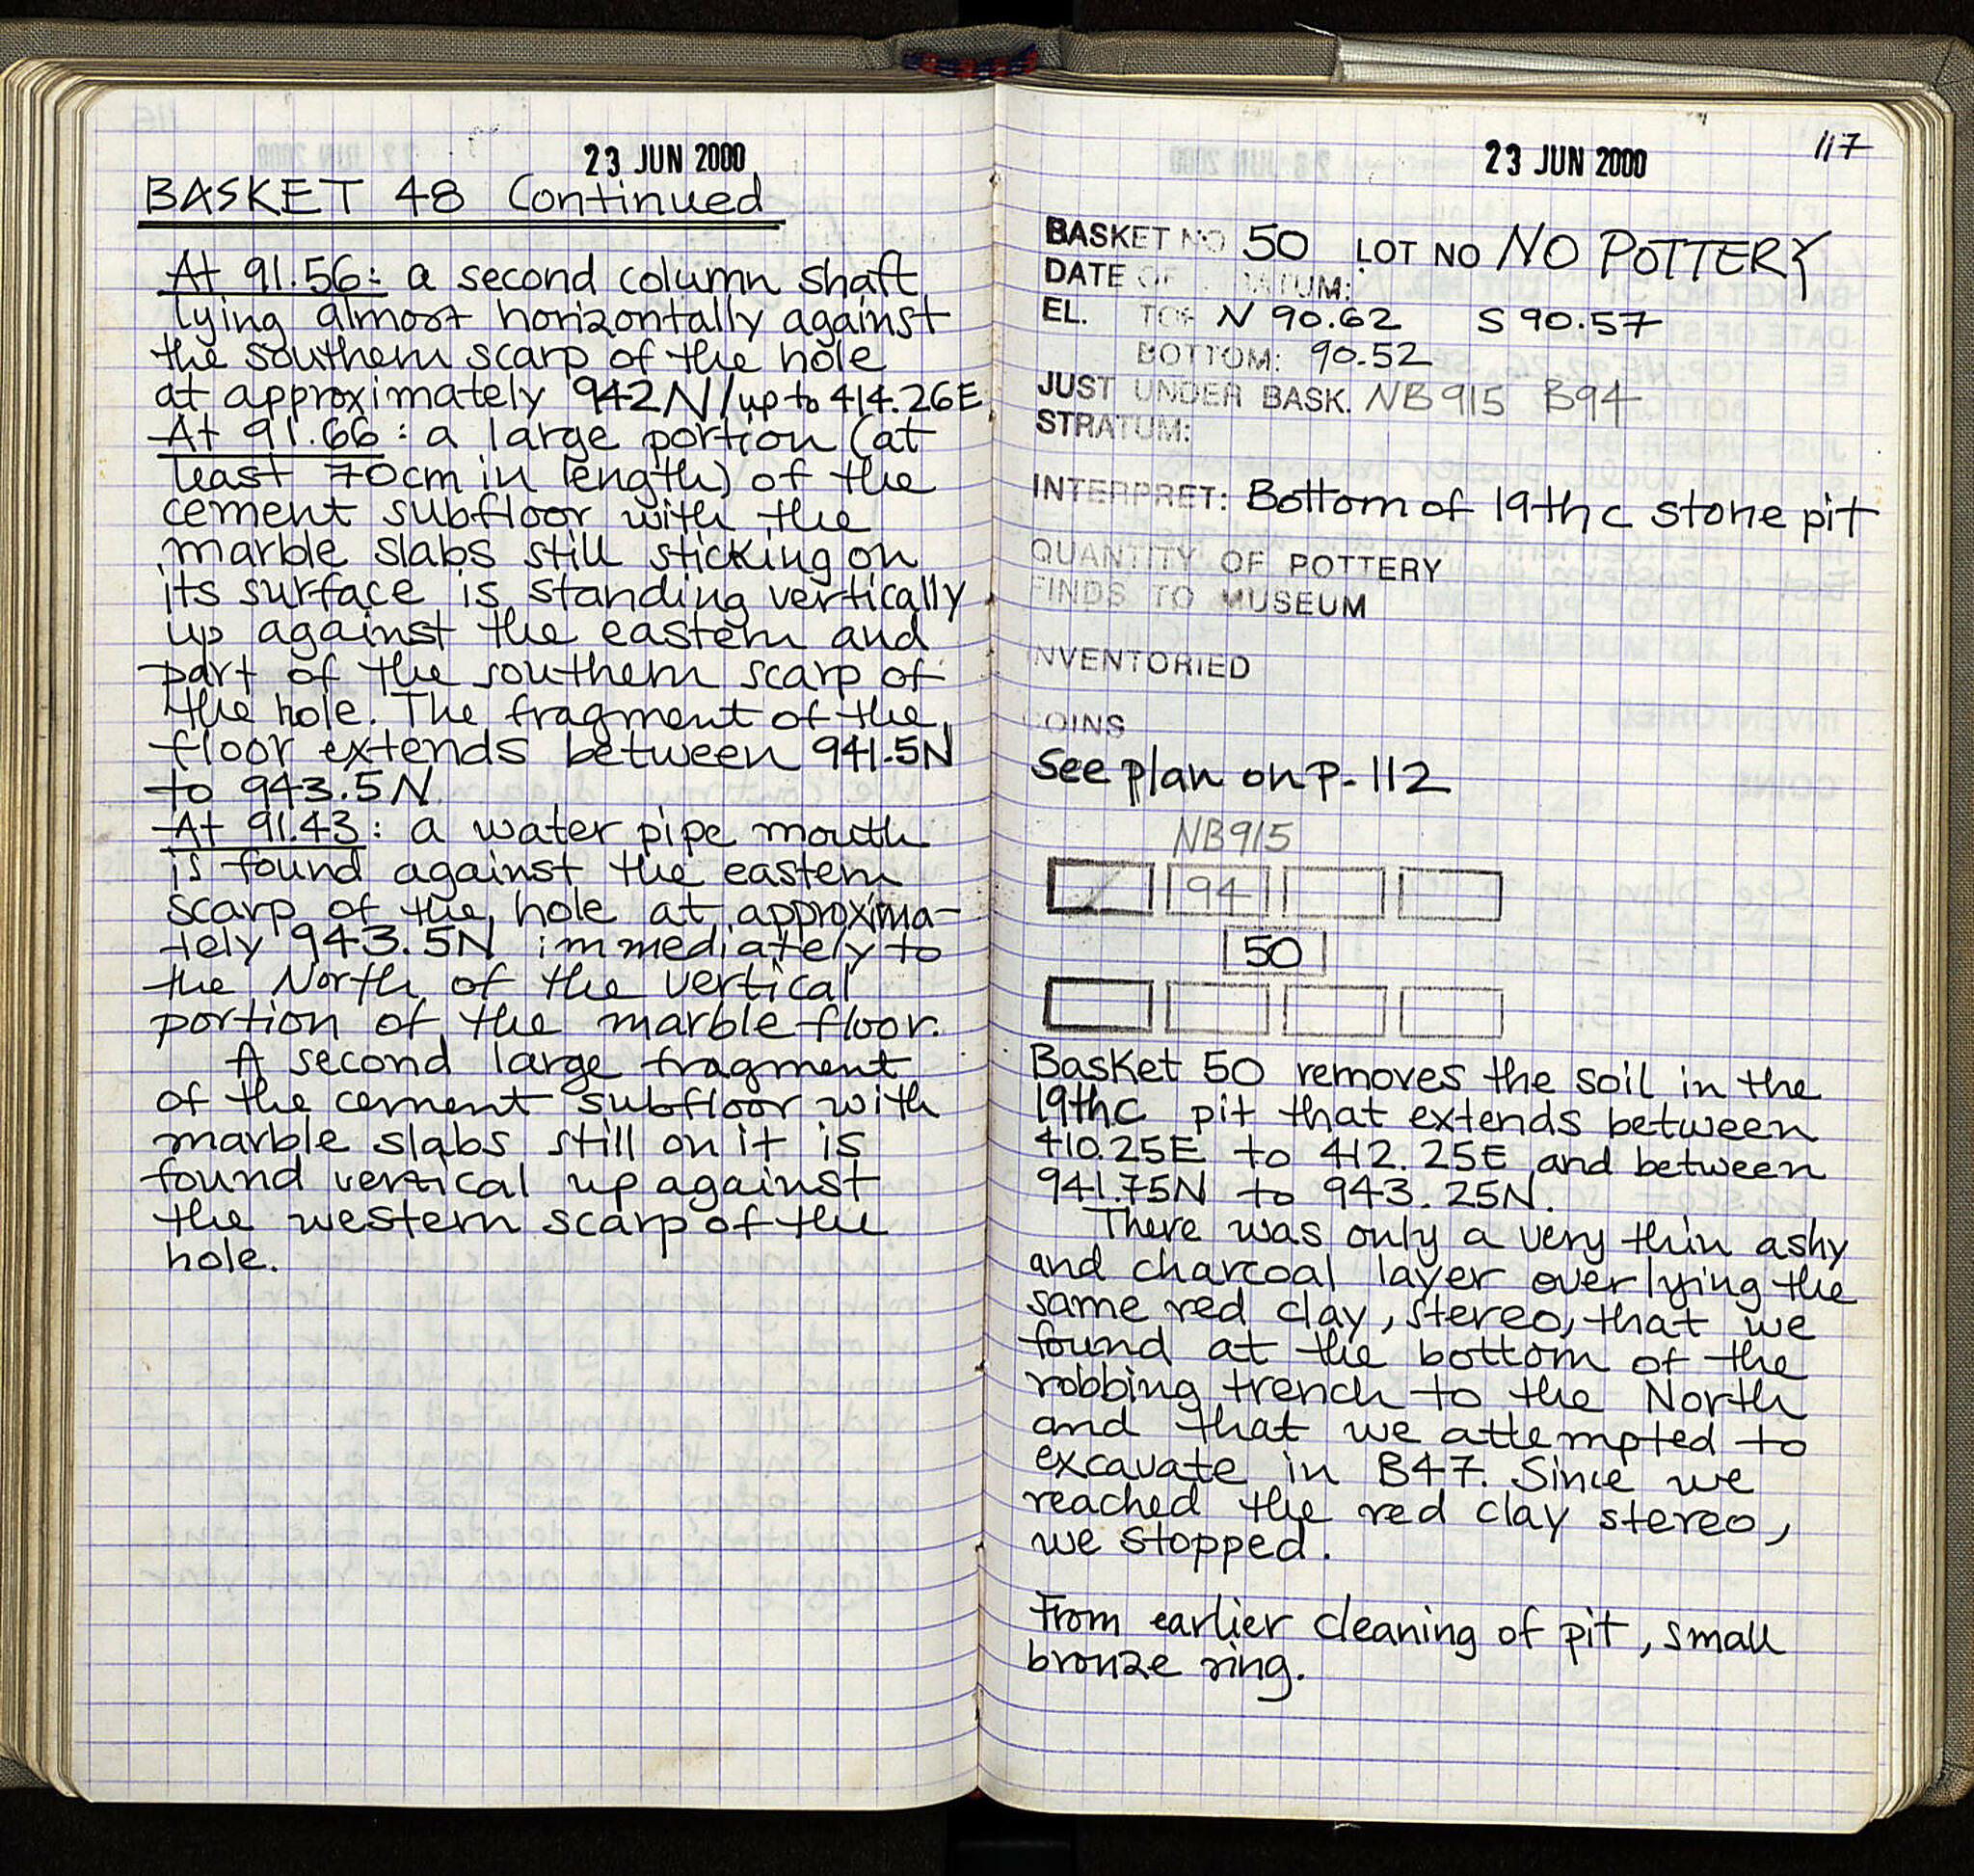 23 JUN 2000
BASKET 48 Continued
At 91.56: a second column shaft
lying almost horizontally against
the southern scarp of the hole
at approximately 942N/up to 414.26E
At 91.66: a large portion (at
least 70cm in length) of the
cement subfloor with the
marble slabs still sticking on
its surface is standing vertically
up against the eastern and
part of the southern scarp of
the hole. The fragment of the
floor extends between 941.5N
to 943.5N
At 91.43: a water pipe mouth
is found against the eastern
scarp of the hole at approxima-
tely 943.5N immediately to
the North of the vertical
portion of the marble floor.
A second large fragment
of the cement subfloor with
marble slabs still on it is
found vertical up against
the western scarp of the
hole.
117
23 JUN 2000
BASKET NO 50 LOT NO NO POTTERY
DATE OF STRATUM:
EL. TOP N 90.62 S 90.57
BOTTOM: 90.52
JUST UNDER BASK. NB915 B94
STRATUM:
INTERPRET: Bottom of 19th c stone pit
QUANTITY OF POTTERY
FINDS TO MUSEUM
INVENTORIED
COINS
See plan on p. 112
NB915
94
50
Basket 50 removes the soil in the
19thc pit that extends between
410.25E to 412.25E and between
941.75N to 943.25N.
There was only a very thin ashy
and charcoal layer overlying the
same red clay, stereo, that we
found at the bottom of the
robbing trench to the North
and that we attempted to
excavate in B47. Since we
reached the red clay stereo,
we stopped.
From earlier cleaning of pit, small
bronze ring.